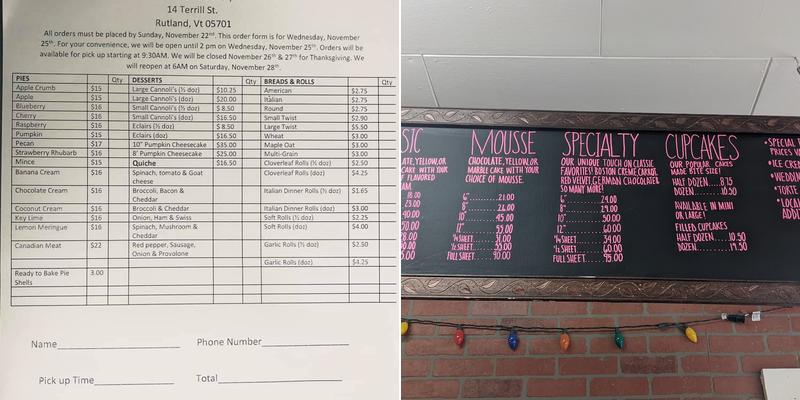 14 Terrill St.
Rutland, Vt 05701
All orders must be placed by Sunday, November 22nd. This order form is for Wednesday, November
25th. For your convenience, we will be open until 2 pm on Wednesday, November 25th. Orders will be
available for pick up starting at 9:30AM. We will be closed November 26th & 27th for Thanksgiving. We
will reopen at 6AM on Saturday, November 28th.
PIES Qty DESSERTS Qty BREADS & ROLLS Qty
Apple Crumb $15 Large Cannoli's (½ doz) $10.25 American $2.75
Apple $15 Large Cannoli's (doz) $20.00 Italian $2.75
Blueberry $16 Small Cannoli's (½ doz) $ 8.50 Round $2.75
Cherry $16 Small Cannoli's (doz) $16.50 Small Twist $2.90
Raspberry $16 Eclairs (½ doz) $ 8.50 Large Twist $5.50
Pumpkin $15 Eclairs (doz) $16.50 Wheat $3.00
Pecan $17 10" Pumpkin Cheesecake $35.00 Maple Oat $3.00
Strawberry Rhubarb $16 8' Pumpkin Cheesecake $25.00 Multi-Grain $3.00
Mince $15 Quiche $16.50 Cloverleaf Rolls (½ doz) $2.50
Banana Cream $16 Spinach, tomato & Goat cheese Cloverleaf Rolls (doz) $4.25
Chocolate Cream $16 Broccoli, Bacon & Cheddar Italian Dinner Rolls (½ doz) $1.65
Coconut Cream $16 Broccoli & Cheddar Italian Dinner Rolls (doz) $3.00
Key Lime $16 Onion, Ham & Swiss Soft Rolls (½ doz) $2.25
Lemon Meringue $16 Spinach, Mushroom & Cheddar Soft Rolls (doz) $4.00
Canadian Meat $22 Red pepper, Sausage, Onion & Provolone Garlic Rolls (½ doz) $2.50
Garlic Rolls (doz) $4.25
Ready to Bake Pie Shells 3.00
Name
Phone Number
Pick up Time
Total
SIC
ATE, YELLOW, OR
CAKE WITH YOUR
F FLAVORED
AM.
18.00
23.00
40.00
50.00
MOUSSE
CHOCOLATE, YELLOW, OR
MARBLE CAKE WITH YOUR
CHOICE OF MOUSSE.
6" 21.00
8" 29.00
10" 45.00
12" 55.00
¼ SHEET 31.00
½ SHEET 55.00
FULL SHEET 90.00
SPECIALTY
OUR UNIQUE TOUCH ON CLASSIC
FAVORITES! BOSTON CREME, CARROT,
RED VELVET, GERMAN CHOCOLATE &
SO MANY MORE!
6" 24.00
8" 29.00
10" 50.00
12" 60.00
¼ SHEET 34.00
½ SHEET 60.00
FULL SHEET 95.00
CUPCAKES
OUR POPULAR CAKES
MADE BITE SIZE!
HALF DOZEN 8.75
DOZEN 10.50
AVAILABLE IN MINI
OR LARGE!
FILLED CUPCAKES
HALF DOZEN 10.50
DOZEN 19.50
*SPECIAL
PRICES
*ICE CRE
*WEDDIN
*TORTE
*LOCA
ADDI